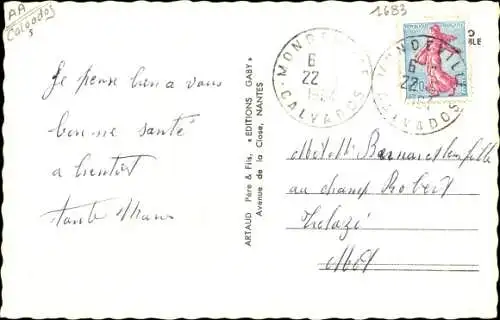 AA
Calvados
3
1683
Je pense bien a vous
bonne santé
a bientot
tante
MONDEVILLE
6
22
CALVADOS
MONDEVILLE
6
22
CALVADOS
ARTAUD Père & Fils, « EDITIONS GABY »
Avenue de la Close, NANTES
Bernard
au champ Robert
Trelazé